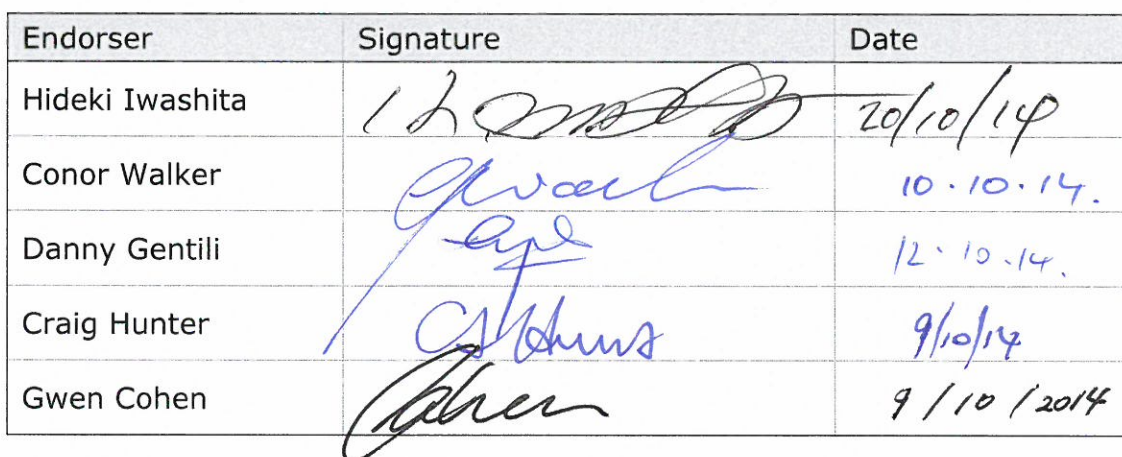 Endorser Signature Date
Hideki Iwashita 20/10/14
Conor Walker 10.10.14.
Danny Gentili 12.10.14.
Craig Hunter 9/10/14
Gwen Cohen 9/10/2014